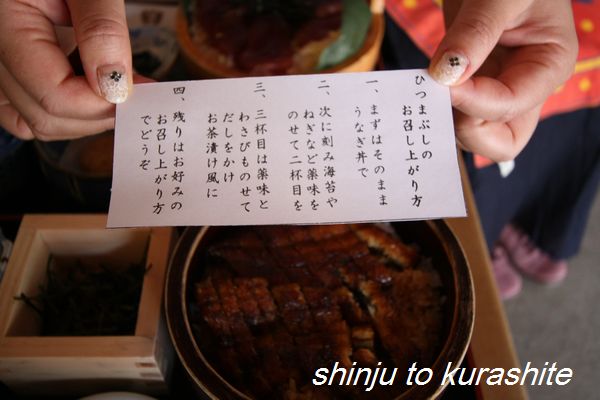 ひつまぶしの
お召し上がり方
一、まずはそのまま
うなぎ丼で
二、次に刻み海苔や
ねぎなど薬味を
のせて二杯目を
三、三杯目は薬味と
わさびものせて
だしをかけ
お茶漬け風に
四、残りはお好みの
お召し上がり方
でどうぞ
shinju to kurashite